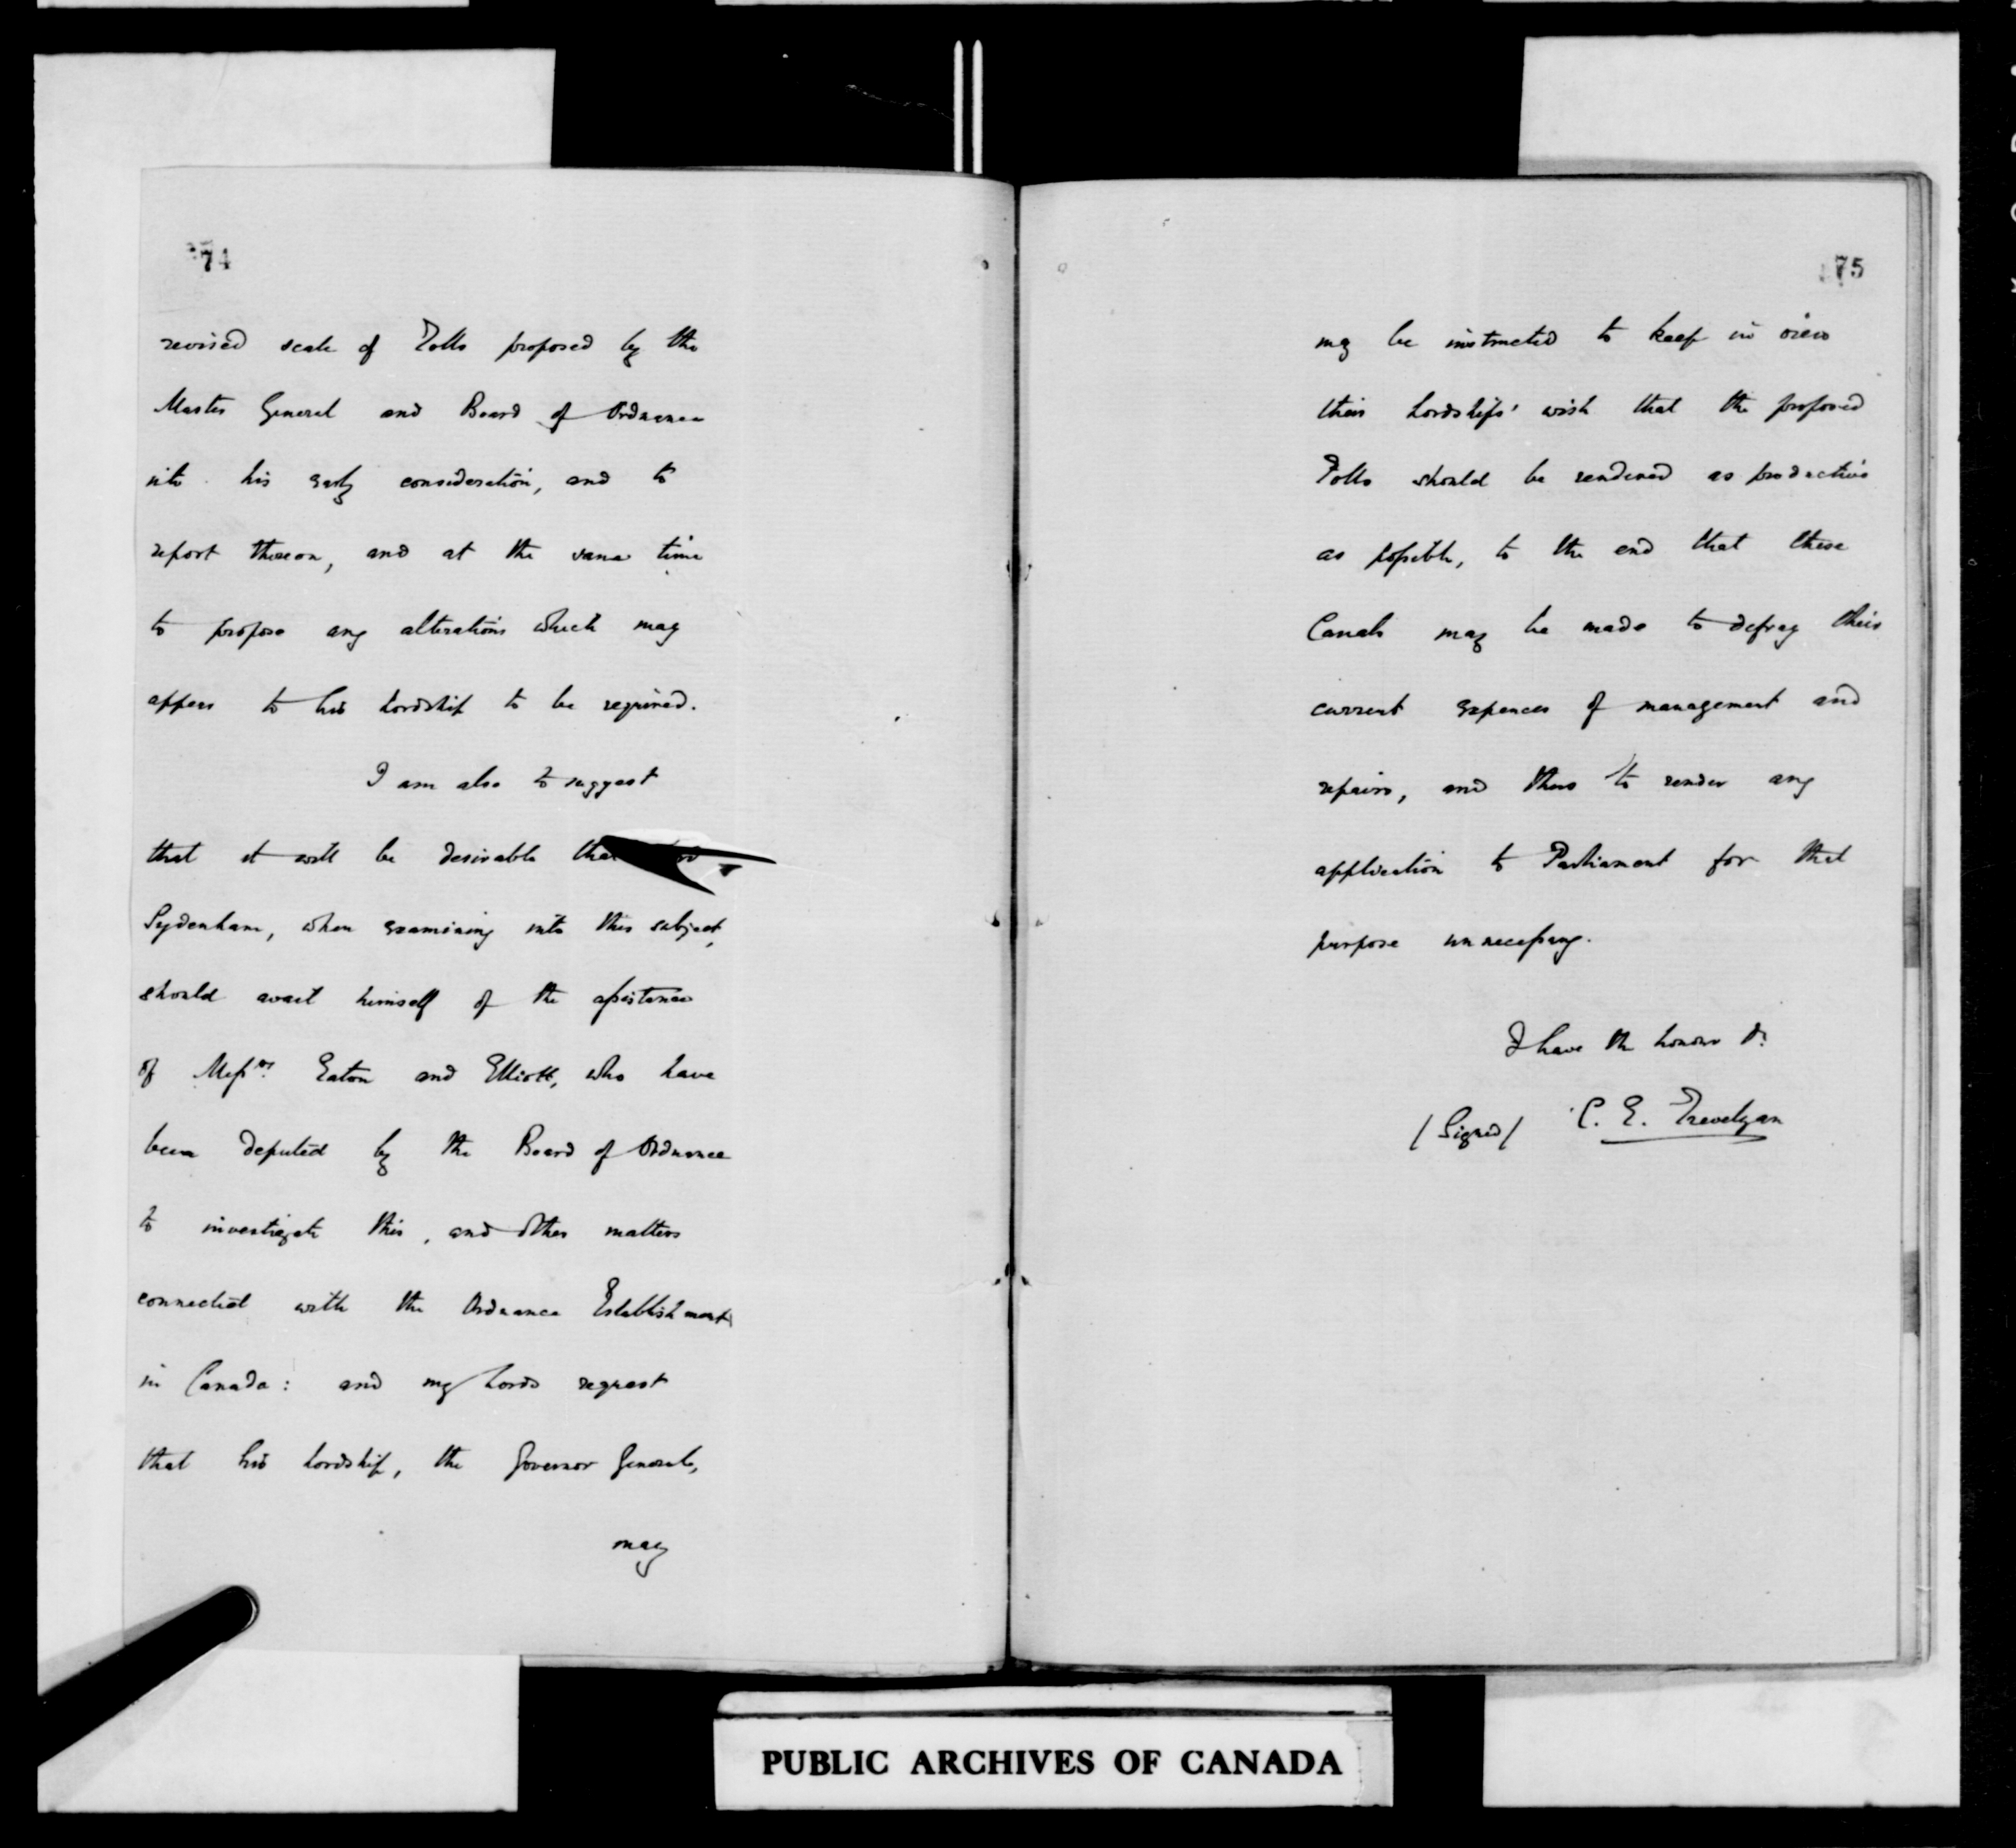 74
revised scale of Tolls proposed by the
Master General and Board of Ordnance
into his early consideration, and to
report thereon, and at the same time
to propose any alterations which may
appear to his Lordship to be required.
I am also to suggest
that it will be desirable that
Sydenham, when examining into this subject,
should avail himself of the assistance
of Messrs. Eaton and Elliott, who have
been deputed by the Board of Ordnance
to investigate this, and other matters
connected with the Ordnance Establishments
in Canada: and my Lords request
that his Lordship, the Governor General,
may
75
may be instructed to keep in view
their Lordships' wish that the proposed
Tolls should be rendered as productive
as possible, to the end that these
Canals may be made to defray their
current expences of management and
repairs, and thus to render any
application to Parliament for that
purpose unnecessary.
I have the honour &c
/Signed/ C. E. Trevelyan
PUBLIC ARCHIVES OF CANADA